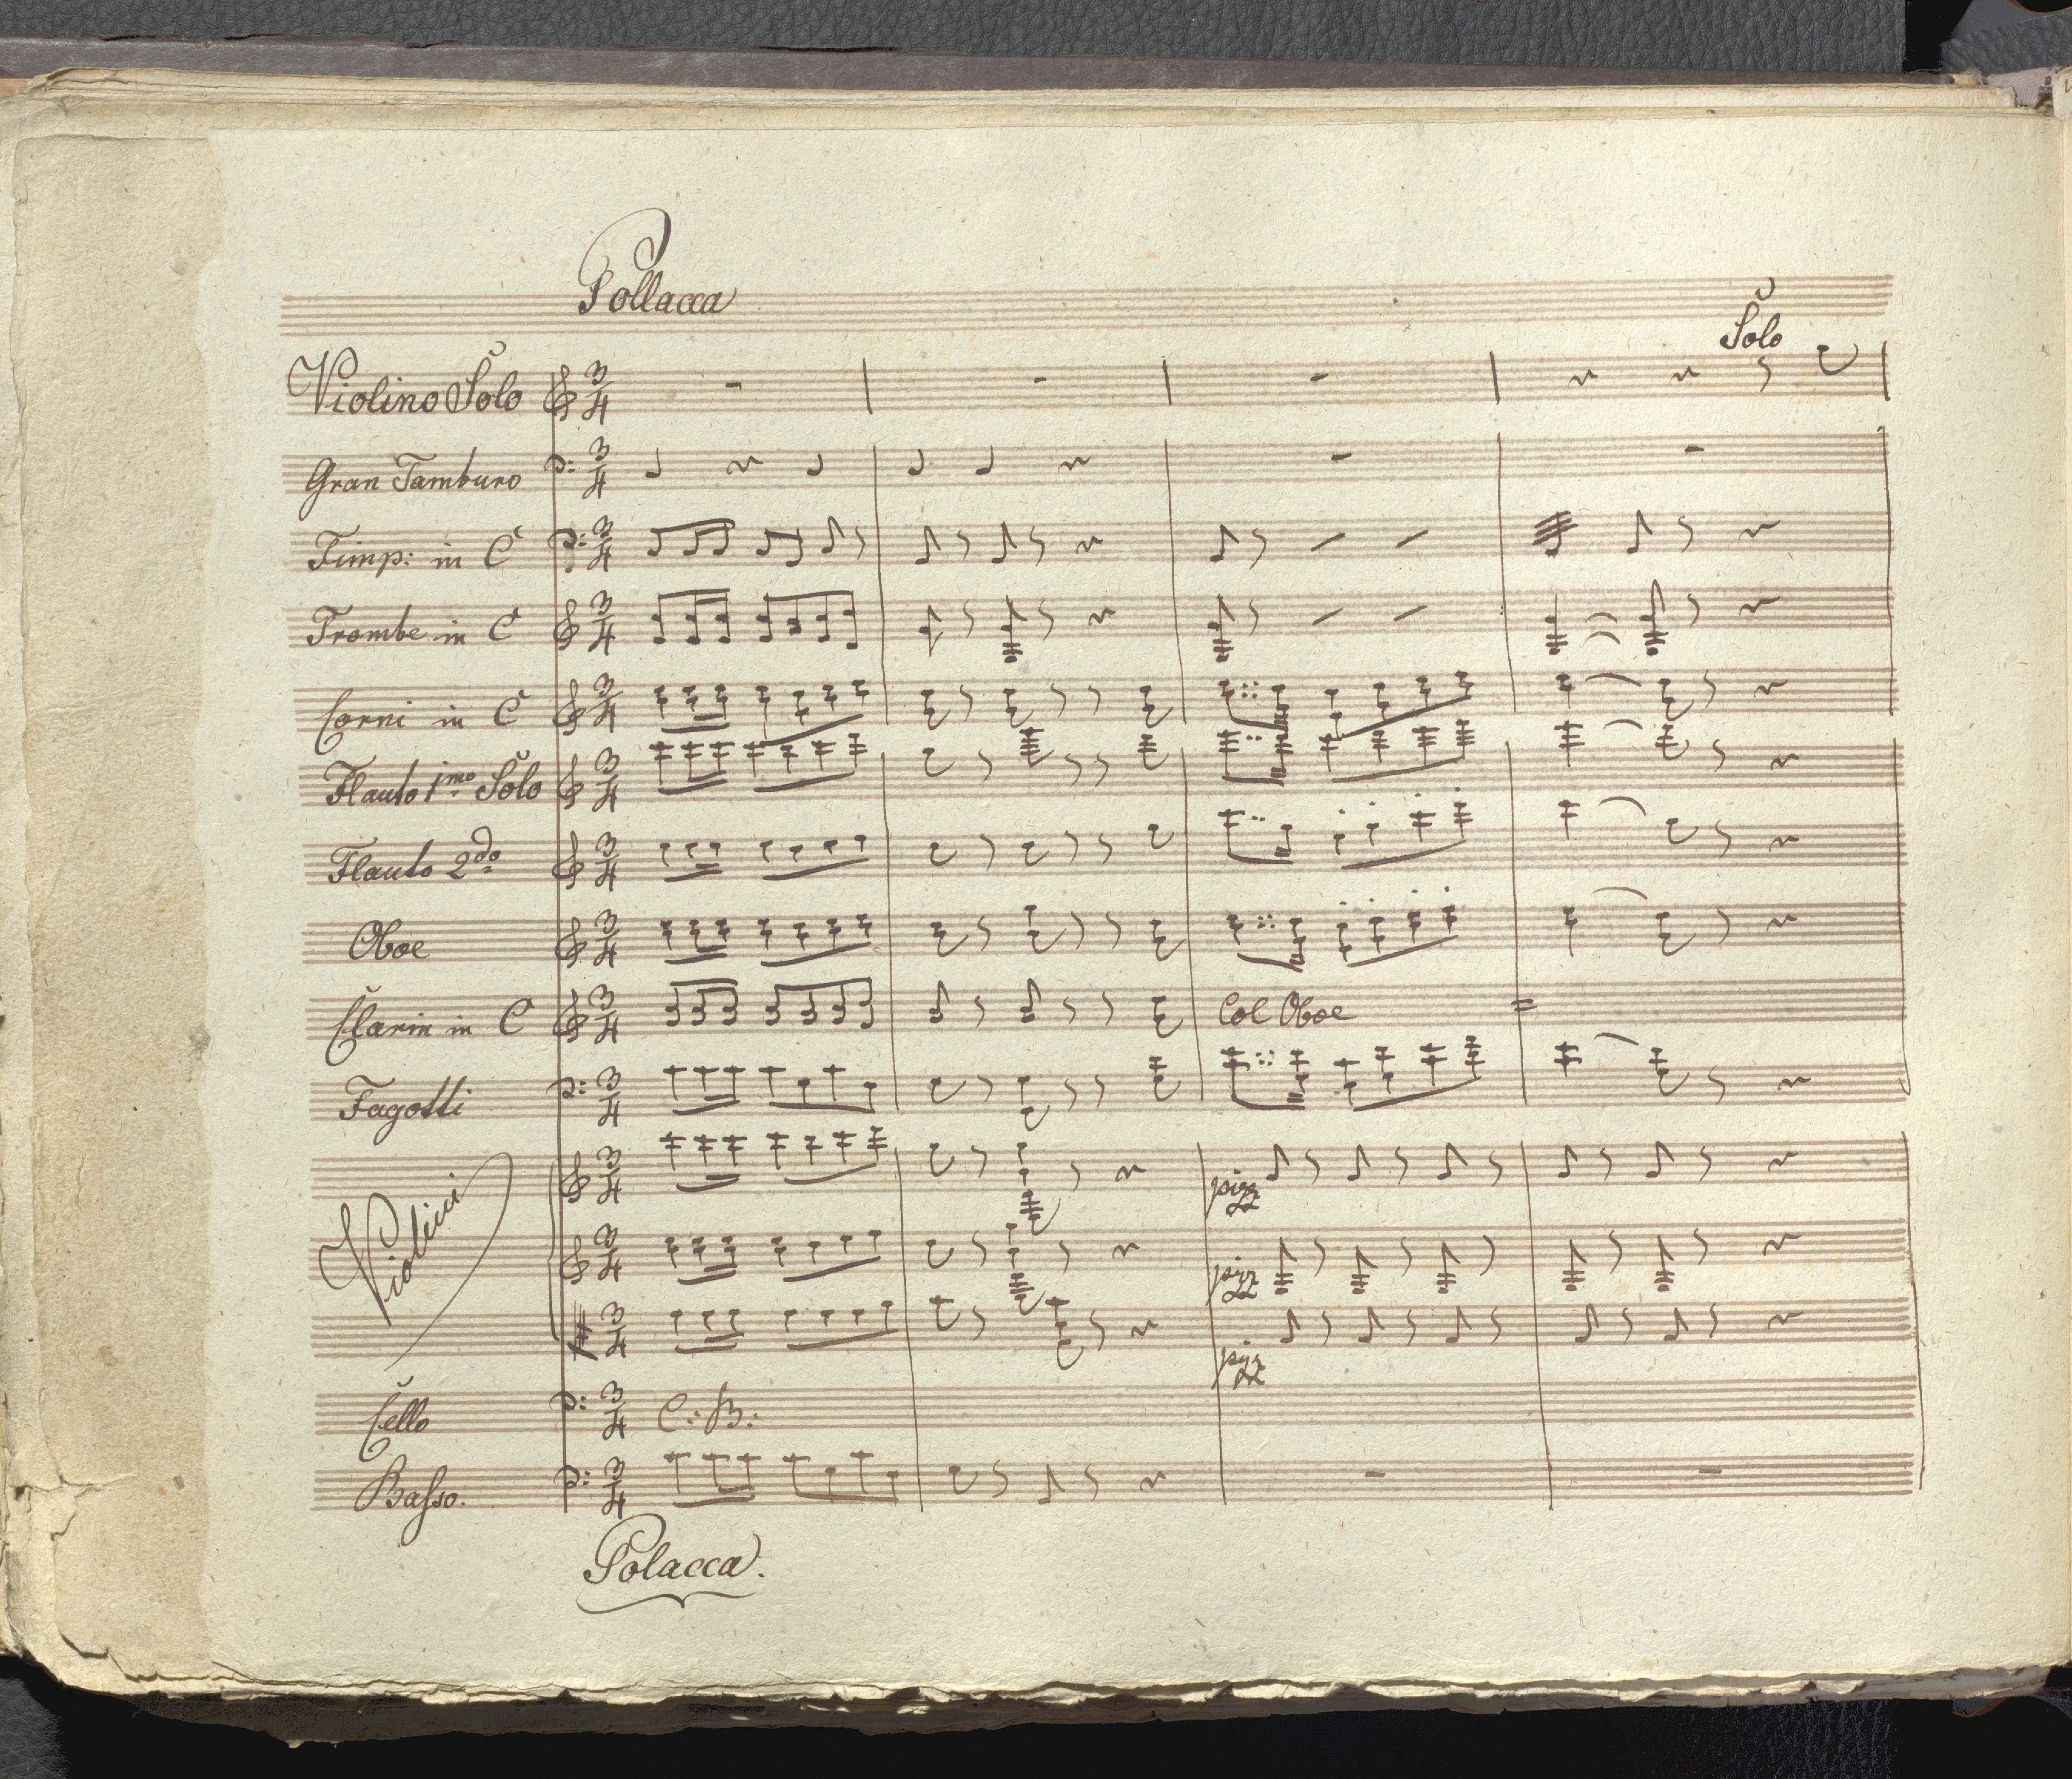 Pollacca
Solo
Violino Solo 3/4
Gran Tamburo 3/4
Timp: in C 3/4
Trombe in C 3/4
Corni in C 3/4
Flauto 1mo Solo 3/4
Flauto 2do 3/4
Oboe 3/4
Clarin in C 3/4 Col Oboe
Fagotti 3/4
Violini 3/4 pizz
3/4 pizz
3/4 pizz
Cello 3/4 C: B:
Baſso. 3/4
Polacca.